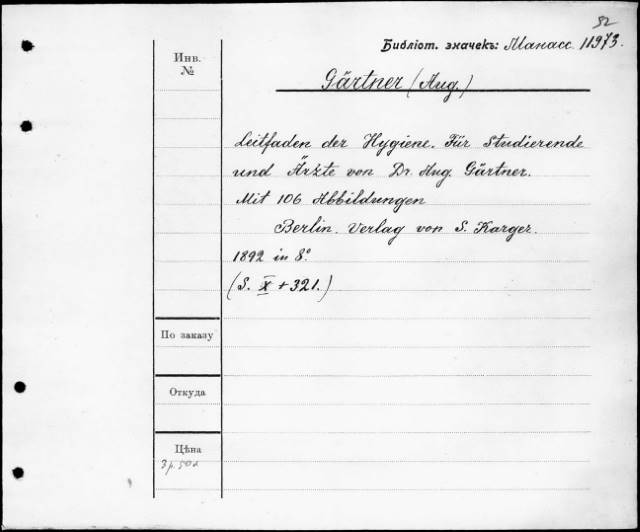 52
Библіот. значекъ: Манасс. 11973.
Инв.
№
Gärtner (Aug.)
Leitfaden der Hygiene. Für Studierende
und Ärzte von Dr. Aug. Gärtner.
Mit 106 Abbildungen
Berlin. Verlag von S. Karger.
1892 in 8º
(S. X + 321.)
По заказу
Откуда
Цѣна
3 р. 50